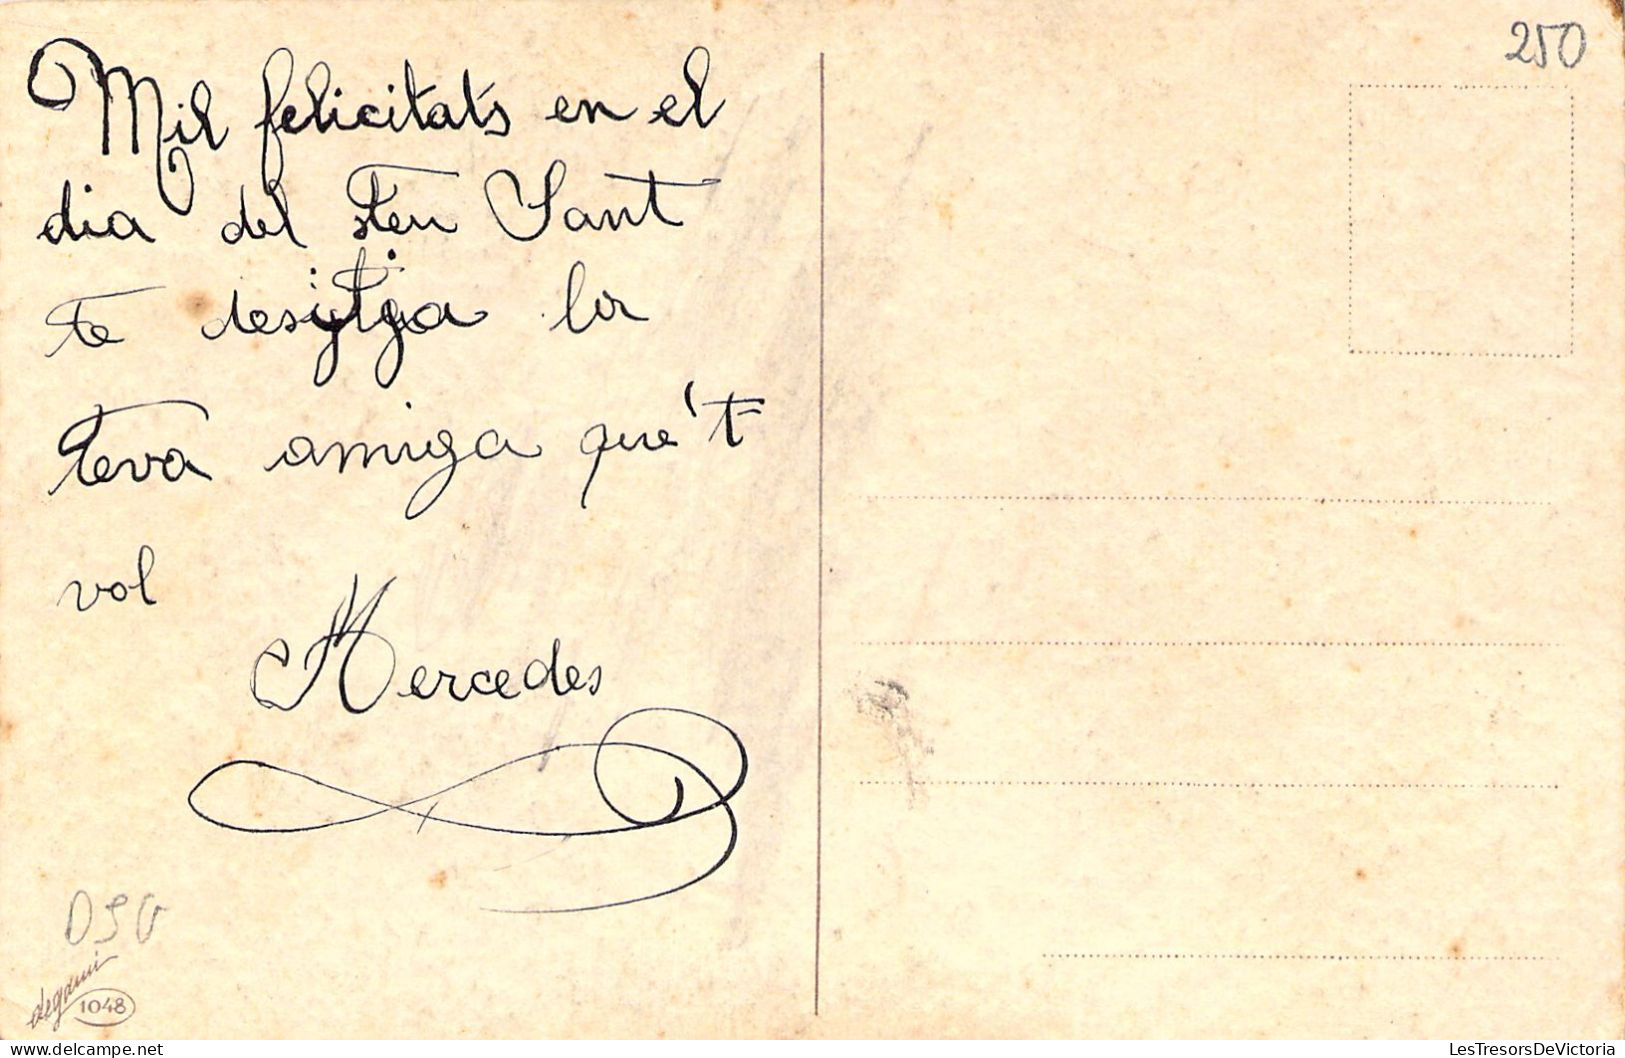 250
Mil felicitats en el
dia del teu Sant
te desitja la
teva amiga que't
vol
Mercedes
degami
1048
LesTresorsDeVictoria